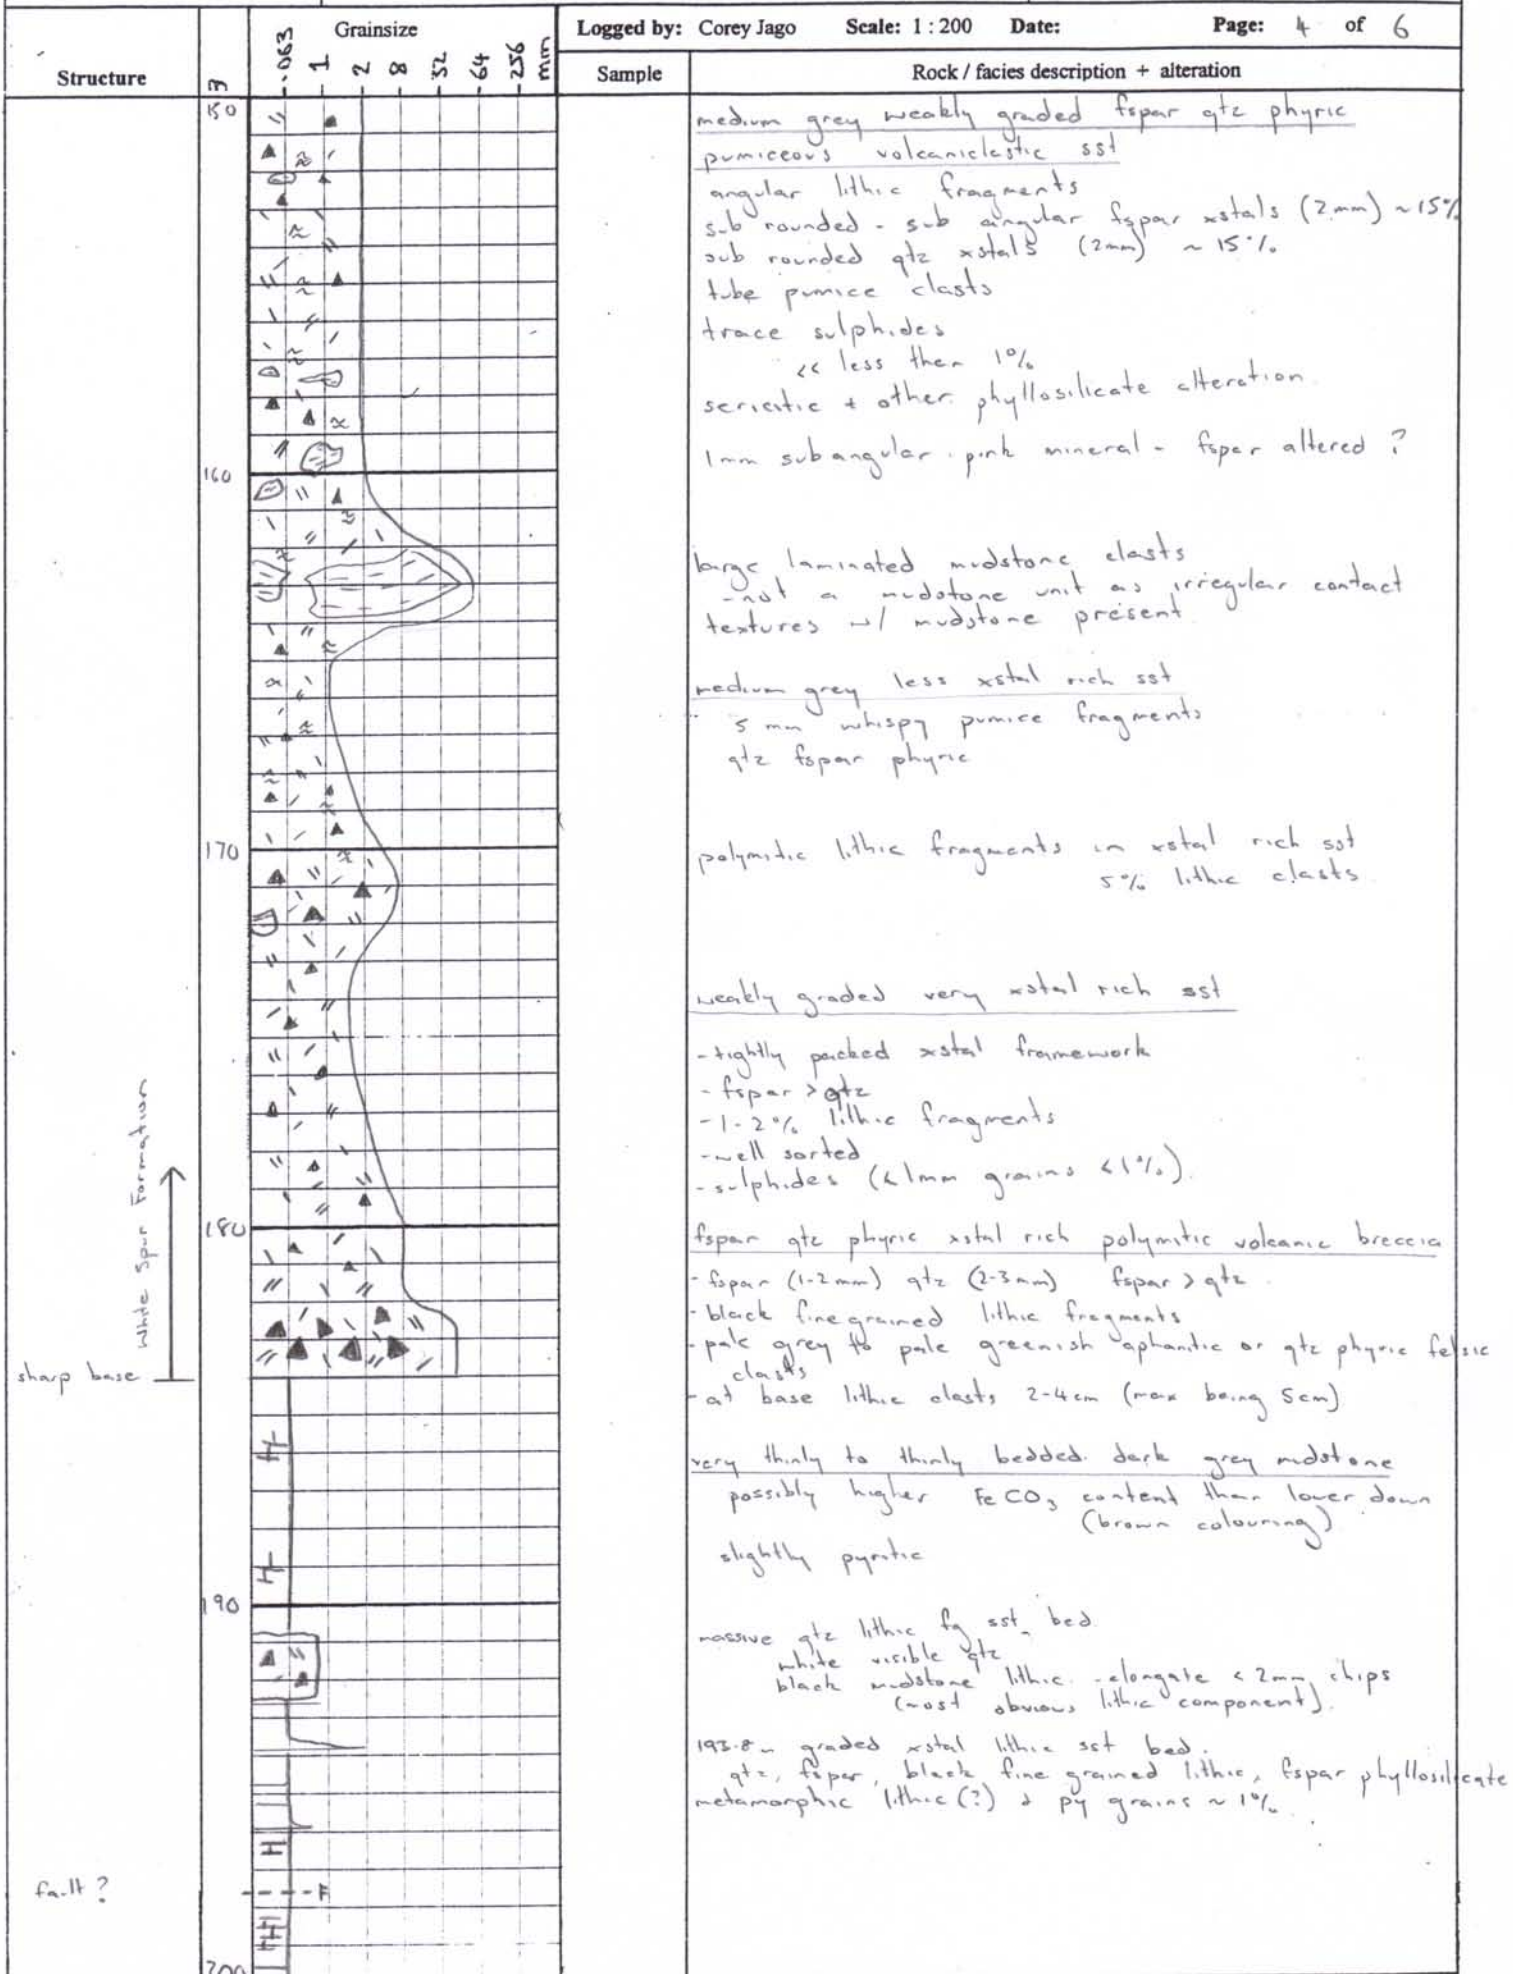 Grainsize
Logged by: Corey Jago Scale: 1 : 200 Date: Page: 4 of 6
Structure
m
.063 1 2 8 32 64 256 mm
Sample
Rock / facies description + alteration
150
medium grey weakly graded fspar qtz phyric
pumiceous volcaniclastic sst
angular lithic fragments
sub rounded - sub angular fspar xstals (2mm) ~15%
sub rounded qtz xstals (2mm) ~ 15%
tube pumice clasts
trace sulphides
<< less then 1%
sericitic + other phyllosilicate alteration
1mm subangular pink mineral - fspar altered ?
160
large laminated mudstone clasts
- not a mudstone unit as irregular contact
textures w/ mudstone present
medium grey less xstal rich sst
5 mm whispy pumice fragments
qtz fspar phyric
170
polymitic lithic fragments in xstal rich sst
5% lithic clasts
weakly graded very xstal rich sst
- tightly packed xstal framework
- fspar > qtz
- 1-2% lithic fragments
- well sorted
- sulphides (<1mm grains <1%).
White Spur Formation
180
fspar qtz phyric xstal rich polymitic volcanic breccia
- fspar (1-2mm) qtz (2-3mm) fspar > qtz
- black fine grained lithic fragments
- pale grey to pale greenish aphanitic or qtz phyric felsic
clasts
sharp base
- at base lithic clasts 2-4cm (max being 5cm)
very thinly to thinly bedded dark grey mudstone
possibly higher FeCO3 content than lower down
(brown colouring)
slightly pyritic
190
massive qtz lithic fg sst bed
white visible qtz
black mudstone lithic - elongate < 2mm chips
(most obvious lithic component).
193.8m graded xstal lithic sst bed.
qtz, fspar, black fine grained lithic, fspar phyllosilicate
metamorphic lithic (?) & py grains ~ 1%.
fault ?
F
200